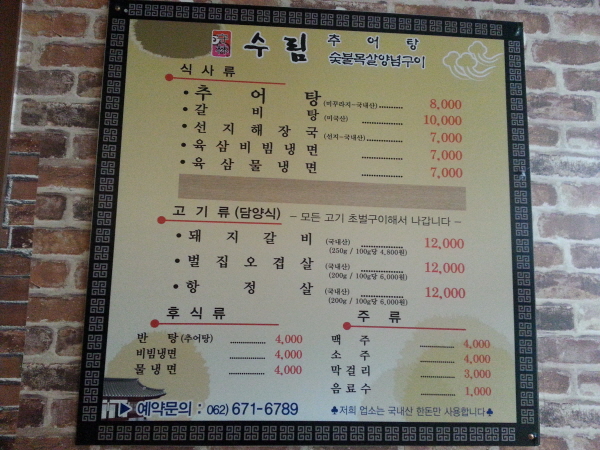 수림 추어탕
숯불목살양념구이
식사류
• 추어탕 (미꾸라지-국내산) ............ 8,000
• 갈비탕 (미국산) ............ 10,000
• 선지해장국 (선지-국내산) ............ 7,000
• 육삼비빔냉면 ............ 7,000
• 육삼물냉면 ............ 7,000
고기류 (담양식) – 모든 고기 초벌구이해서 나갑니다 –
• 돼지갈비 (국내산) ............ 12,000
(250g / 100g당 4,800원)
• 벌집오겹살 (국내산) ............ 12,000
(200g / 100g당 6,000원)
• 항정살 (국내산) ............ 12,000
(200g / 100g당 6,000원)
후식류
반탕 (추어탕) ............ 4,000
비빔냉면 ............ 4,000
물냉면 ............ 4,000
주류
맥주 ............ 4,000
소주 ............ 4,000
막걸리 ............ 3,000
음료수 ............ 1,000
예약문의 : 062) 671-6789
♣저희 업소는 국내산 한돈만 사용합니다♣